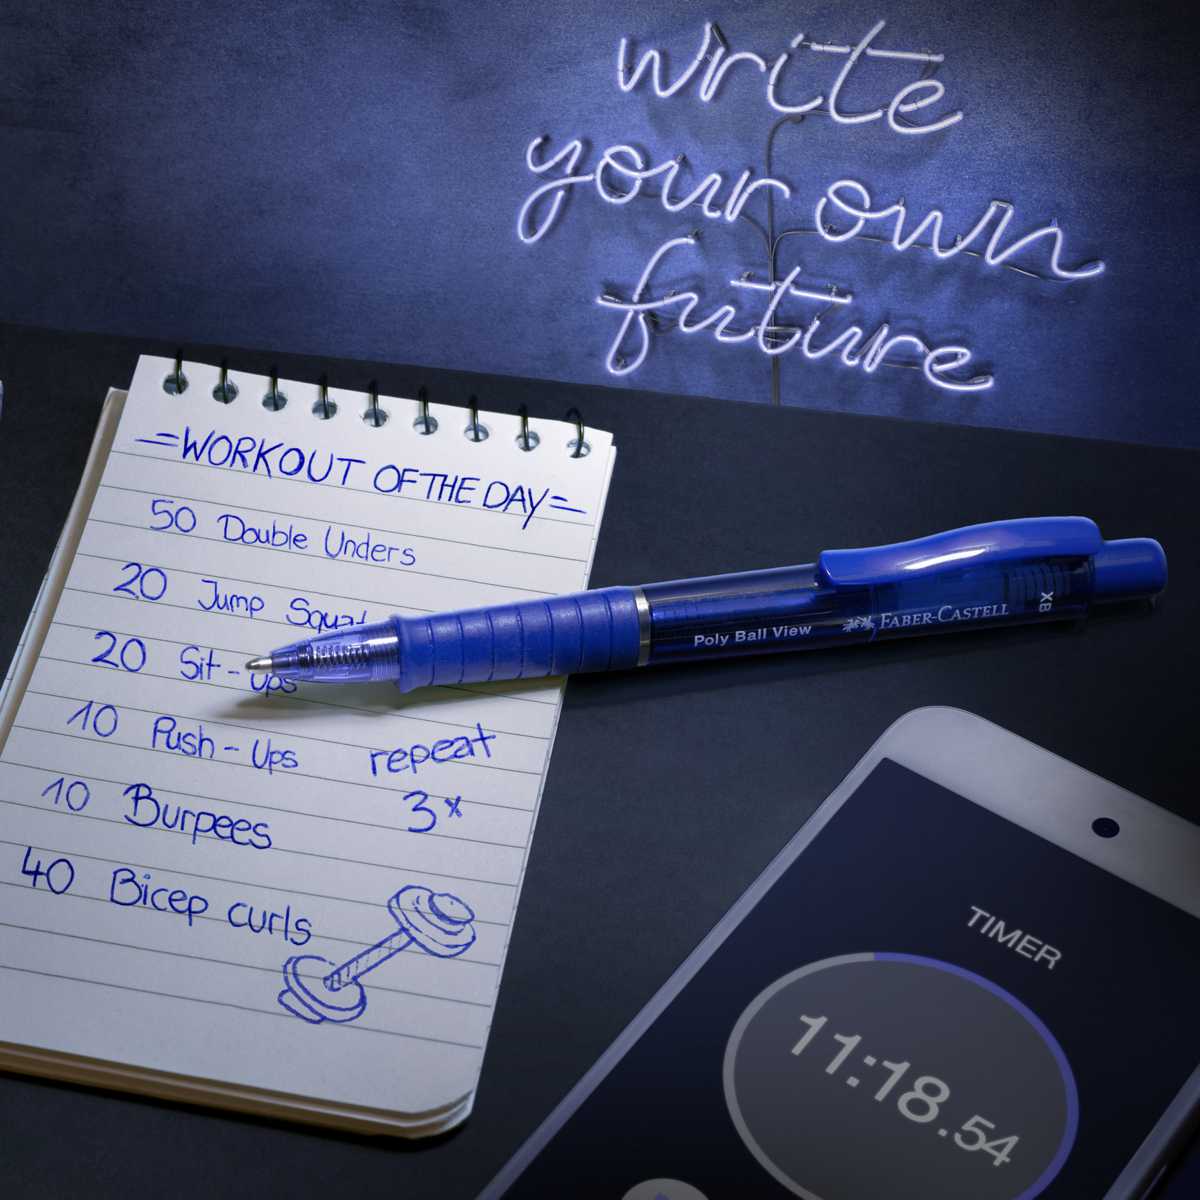 write
your own
future
=WORKOUT OF THE DAY=
50 Double Unders
20 Jump Squat
20 Sit-Ups
10 Push-Ups
10 Burpees
40 Bicep curls
repeat
3x
Poly Ball View FABER-CASTELL XB
TIMER
11:18.54